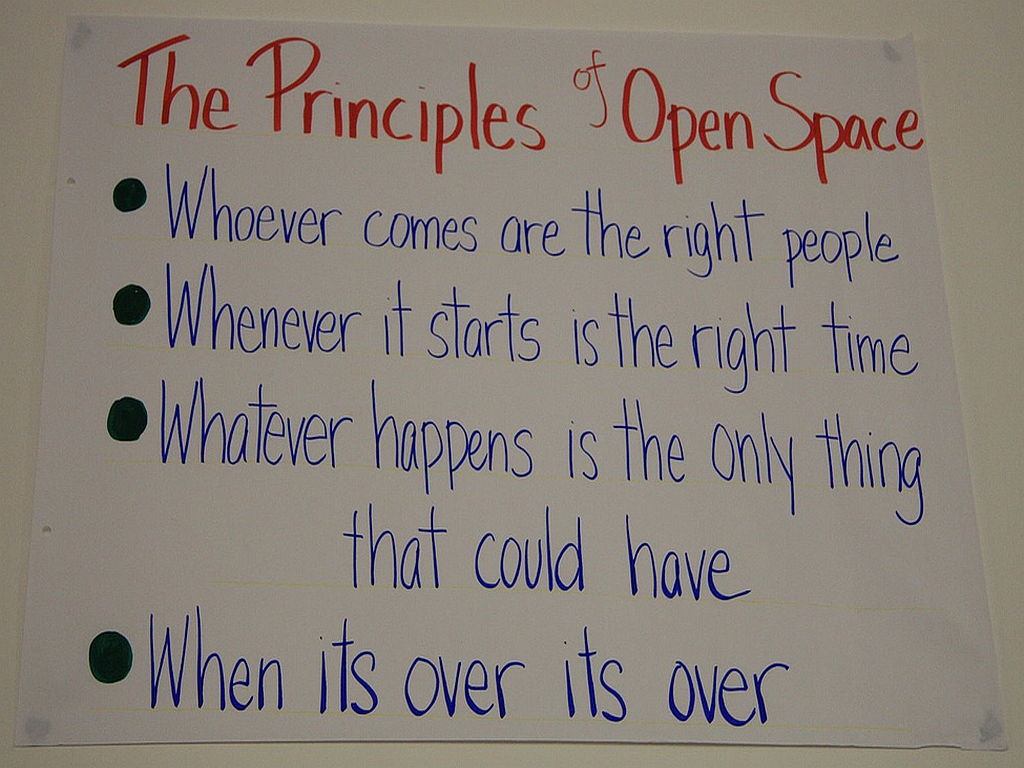 The Principles of Open Space
Whoever comes are the right people
Whenever it starts is the right time
Whatever happens is the only thing
that could have
When its over its over